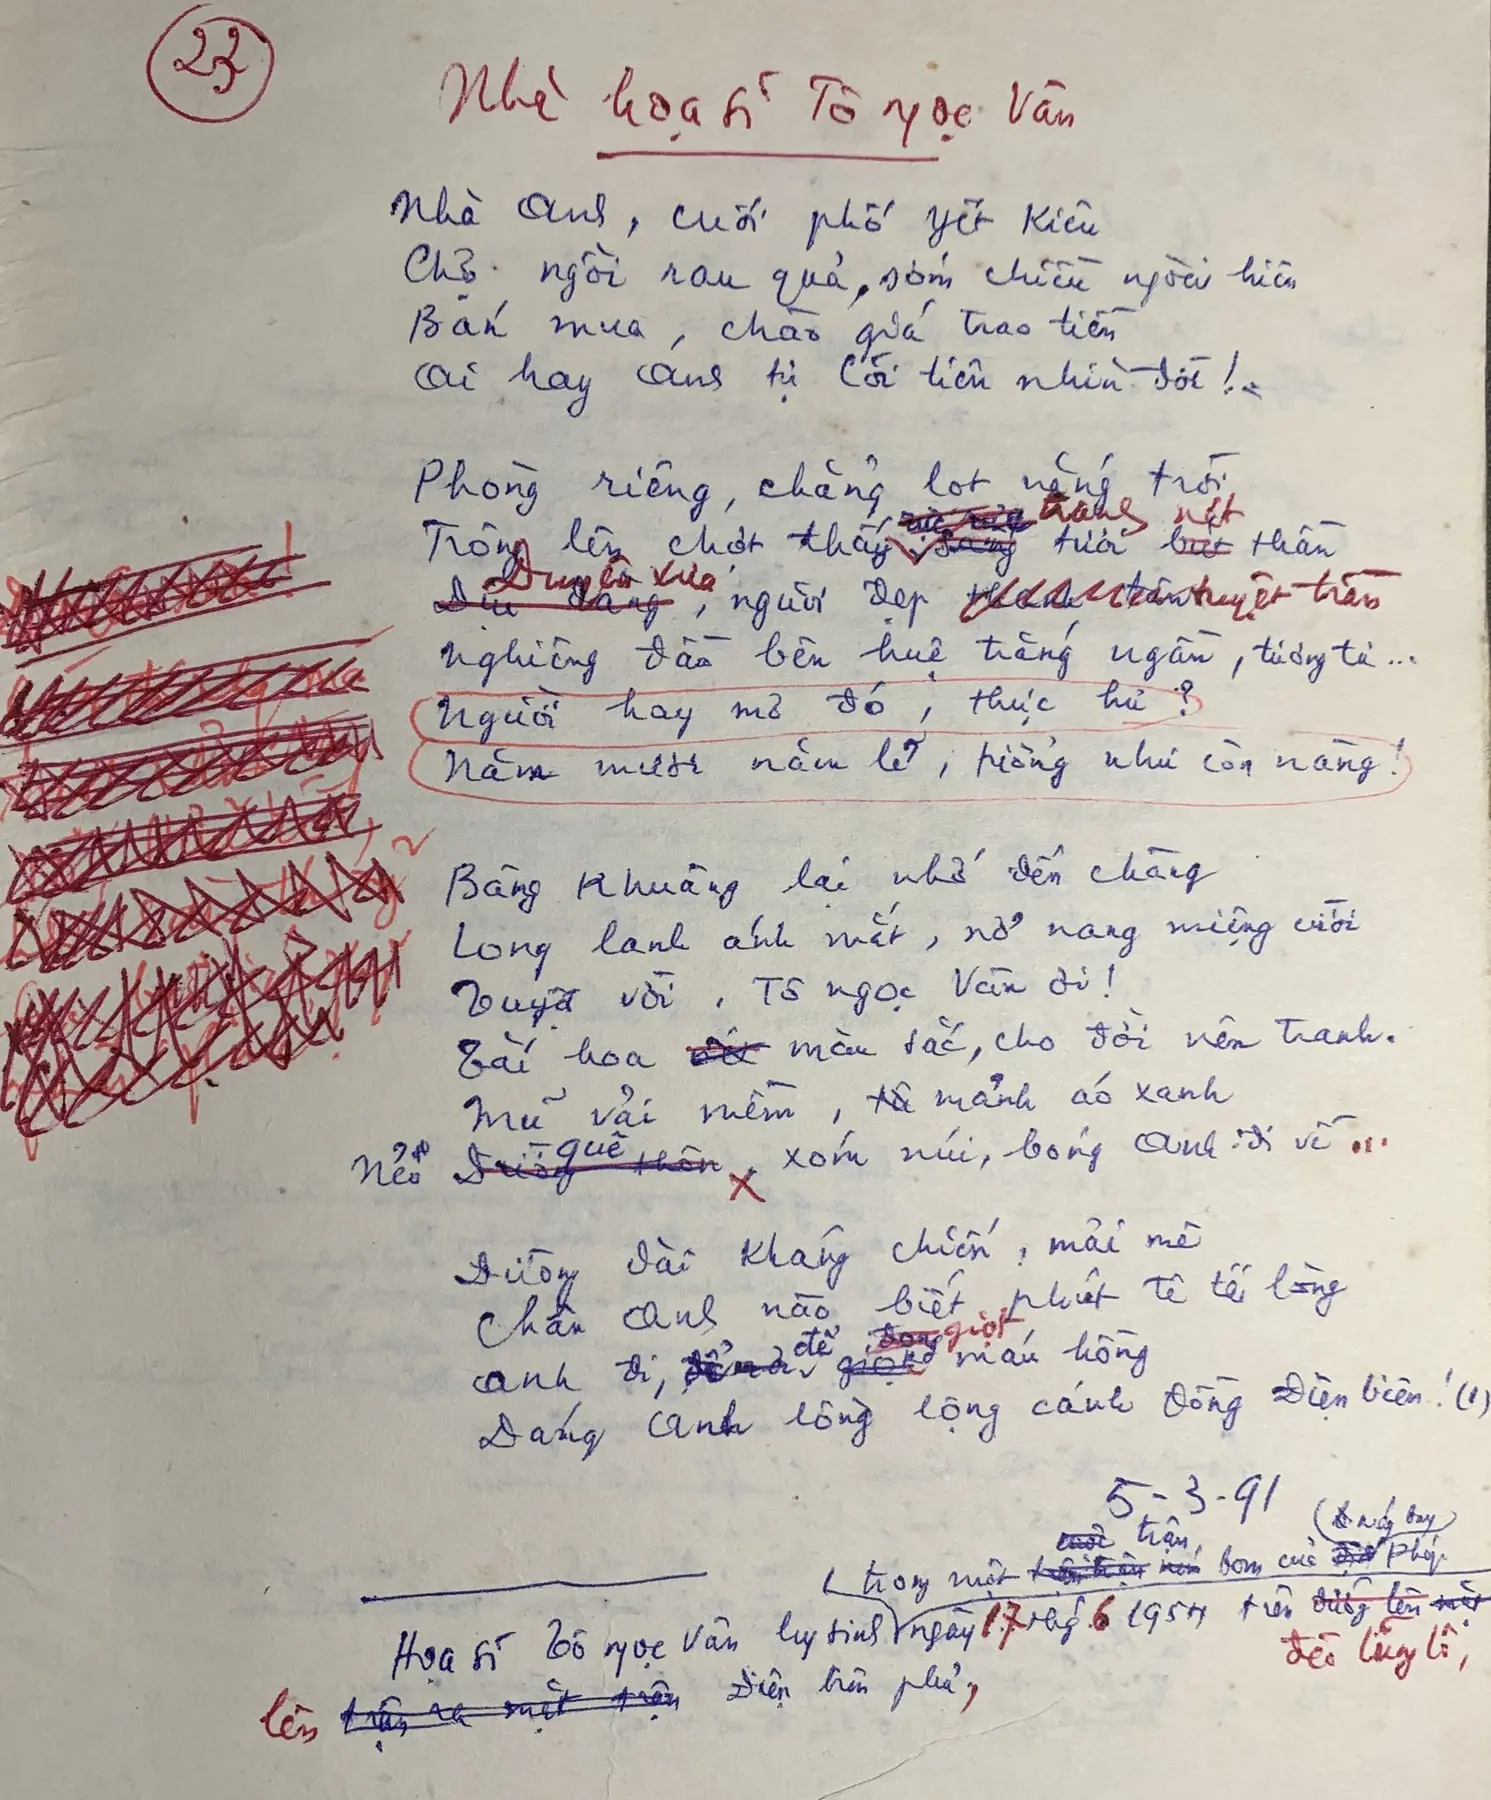 23
Nhà họa sĩ Tô Ngọc Vân
Nhà Anh, cuối phố Yết Kiêu
Chợ ngồi rau quả, sớm chiều người hiên
Bán mua, chào giá trao tiền
Ai hay Anh tự Cõi tiên nhìn đời!..
Phòng riêng, chẳng lọt nắng trời
Trông lên chợt thấy tranh tươi nét thần
Duyên xưa, người đẹp tuyệt trần
Nghiêng đầu bên huệ trắng ngần, tương tư...
Người hay mơ đó, thực hư?
Năm mươi năm lẻ, tưởng như còn nàng!
Bâng khuâng lại nhớ đến chàng
Long lanh ánh mắt, nở nang miệng cười
Tuyệt vời, Tô Ngọc Vân ơi!
Tài hoa màu sắc, cho đời nên tranh.
Mũ vải mềm, mảnh áo xanh
Nẻo quê, xóm núi, bóng Anh đi về...
Đường dài Kháng chiến, mải mê
Chân Anh nào biết phút tê tái lòng
Anh đi, để giọt máu hồng
Dáng Anh lồng lộng cánh đồng Điện Biên! (1)
5-3-91
(trong một trận, bom của máy bay Pháp
Họa sĩ Tô Ngọc Vân hy sinh ngày 17 thg 6 1954 trên đèo Lũng Lô,
lên Điện Biên Phủ,